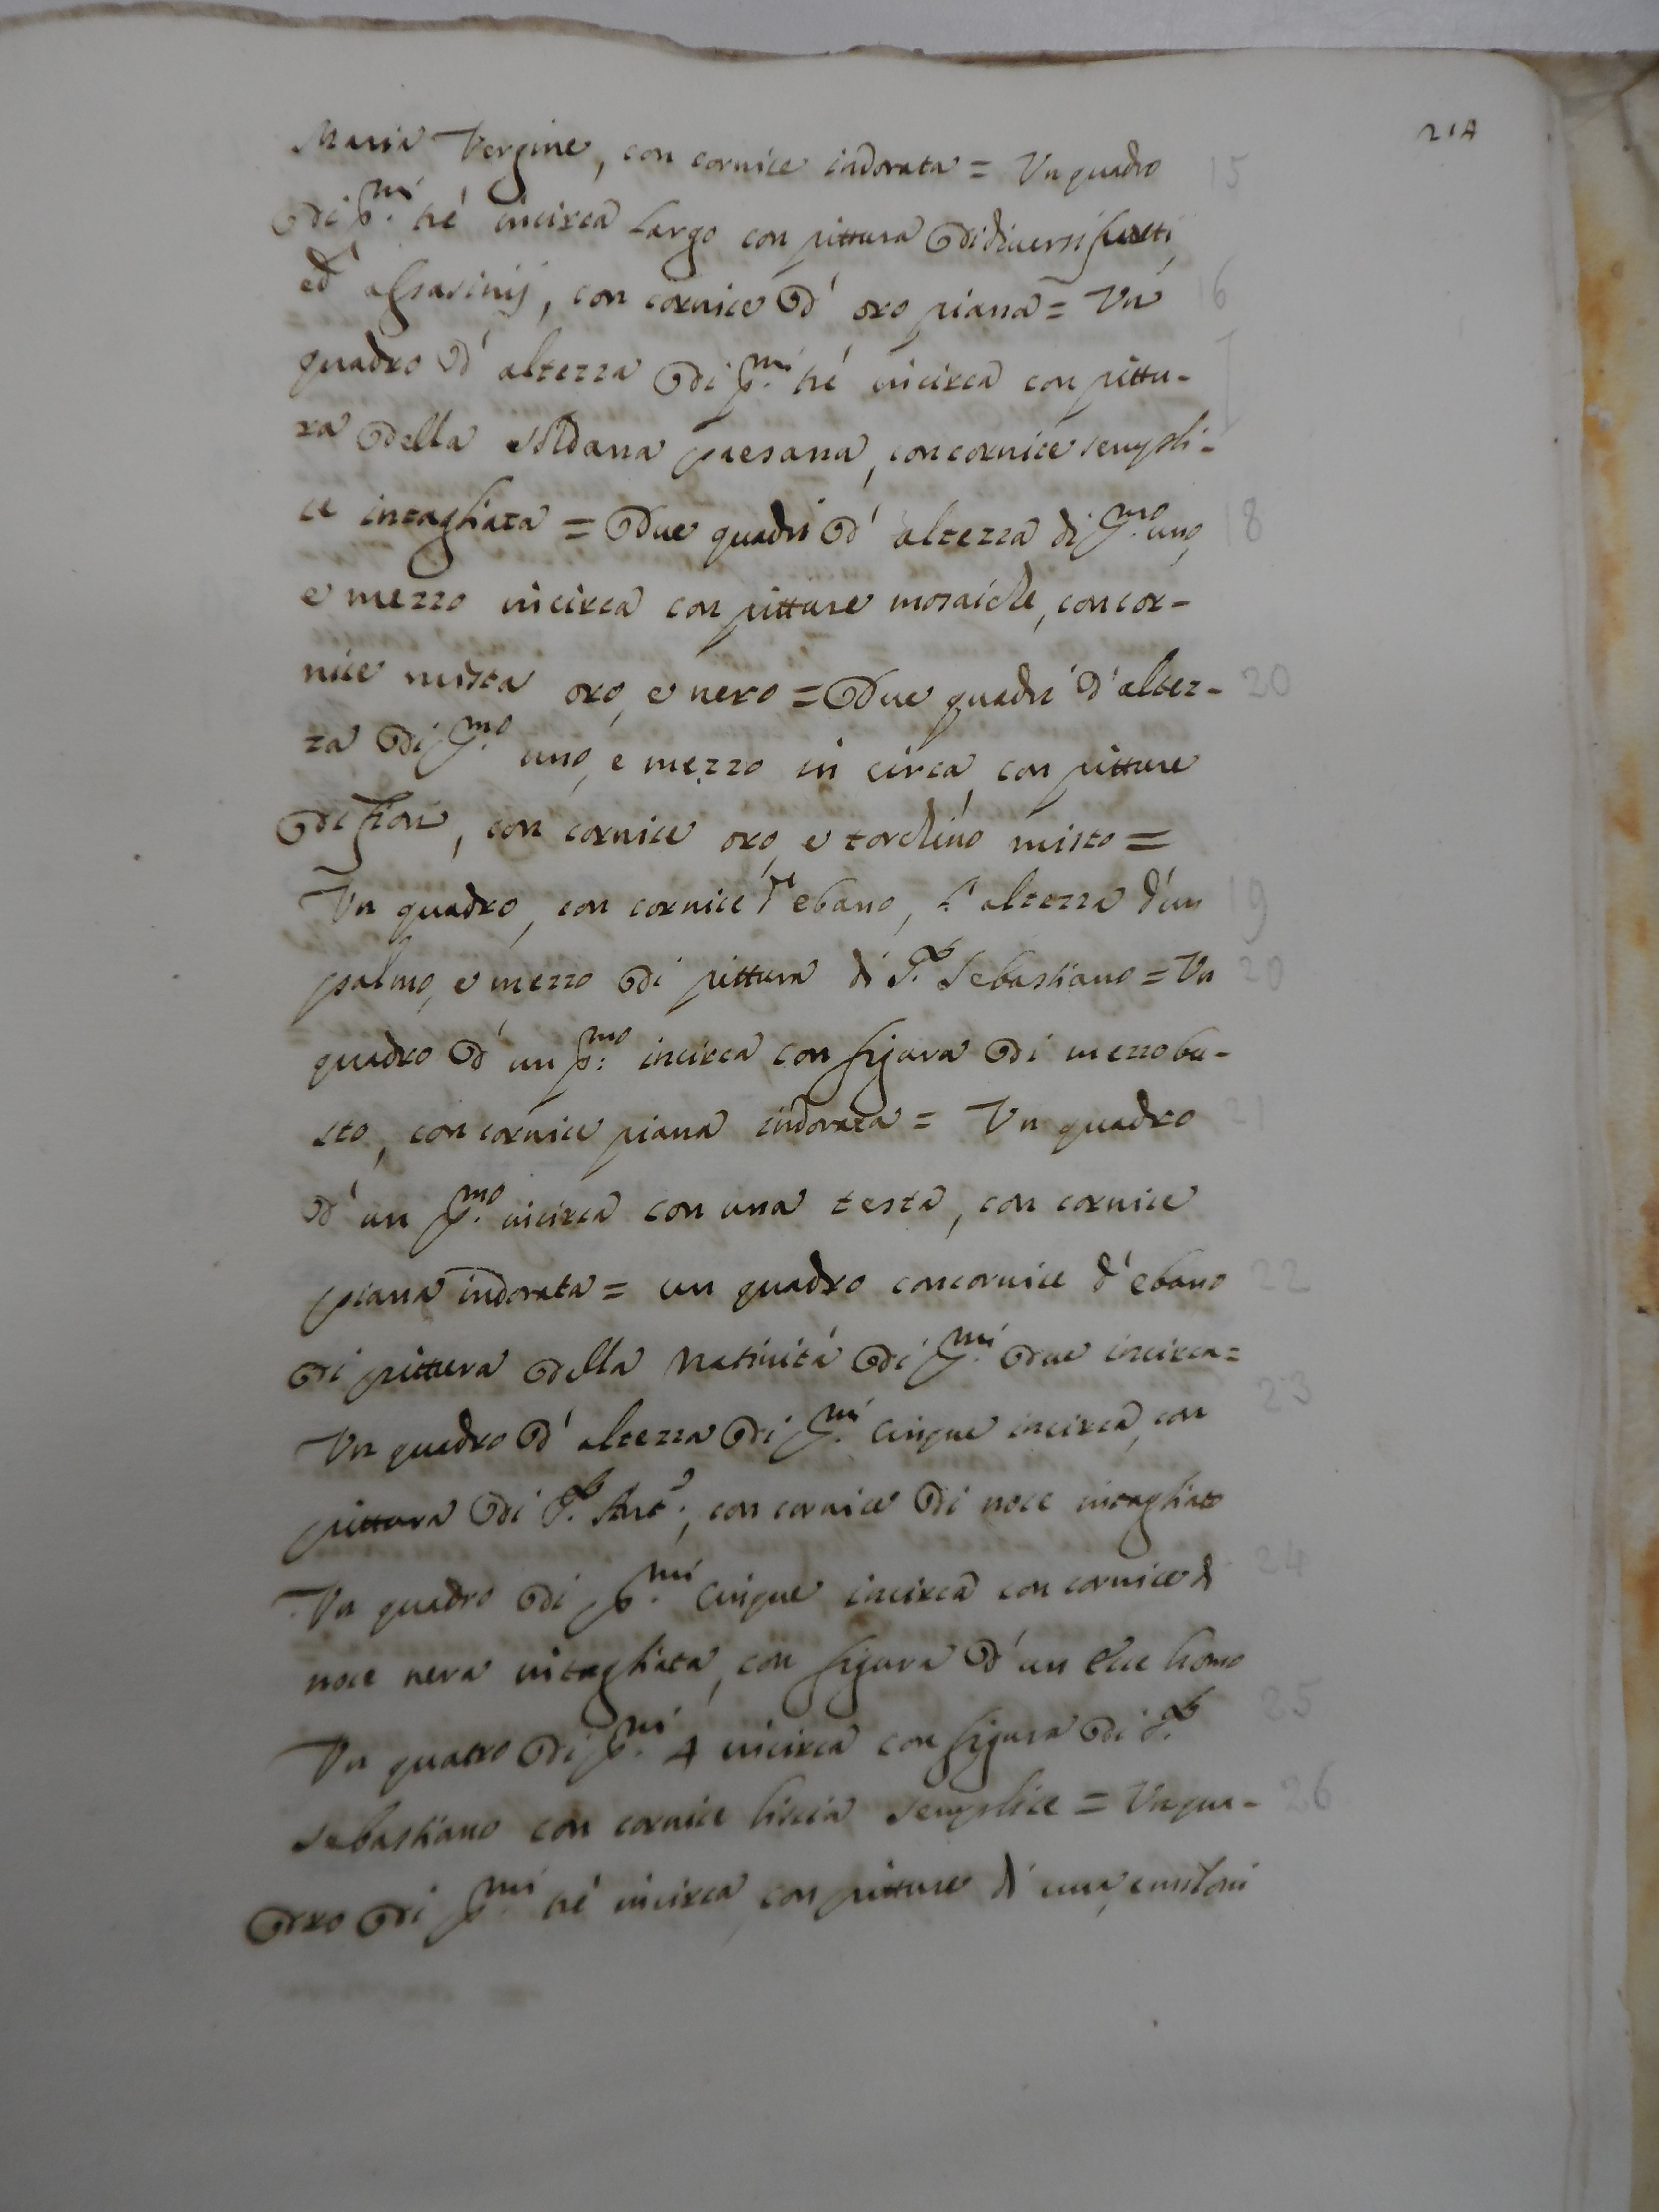 214
Maria Vergine, con cornice indorata = Un quadro 15
di p.mi tré incirca Largo con pittura di diversi frutti,
ed assasinij, con cornice d' oro piana = Un 16
quadro d' altezza di p.mi tré incirca con pittu-
ra della paesana, con cornice sempli-
ce intagliata = Due quadri d' altezza di p.mo uno, 18
e mezzo incirca con pitture mosaiche, con cor-
nice mista oro, e nero = Due quadri d' altez- 20
za di p.mo uno, e mezzo in circa, con pitture
di fiori, con cornice oro, e torchino misto =
Un quadro, con cornice d' ebano, altezza d'un 19
palmo, e mezzo di pittura di S. Sebastiano = Un 20
quadro d' un p:mo incirca con figura di mezzo bu-
sto, con cornice piana indorata = Un quadro 21
d' un p.mo incirca con una testa, con cornice
piana indorata = un quadro con cornice d' ebano 22
di pittura della Natiuità di p.mi due incirca =
Un quadro d' altezza di p.mi Cinque incirca, con 23
pittura di S. Ant.o, con cornice di noce intagliato
Un quadro di p.mi Cinque incirca con cornice di 24
noce nera intagliata, con figura d' un Ecce homo
Un quatro di p.mi 4 incirca con figura di S. 25
Sebastiano con cornice liscia semplice = Un qua- 26
dro di p.mi tré incirca, con pitture di uva, e meloni